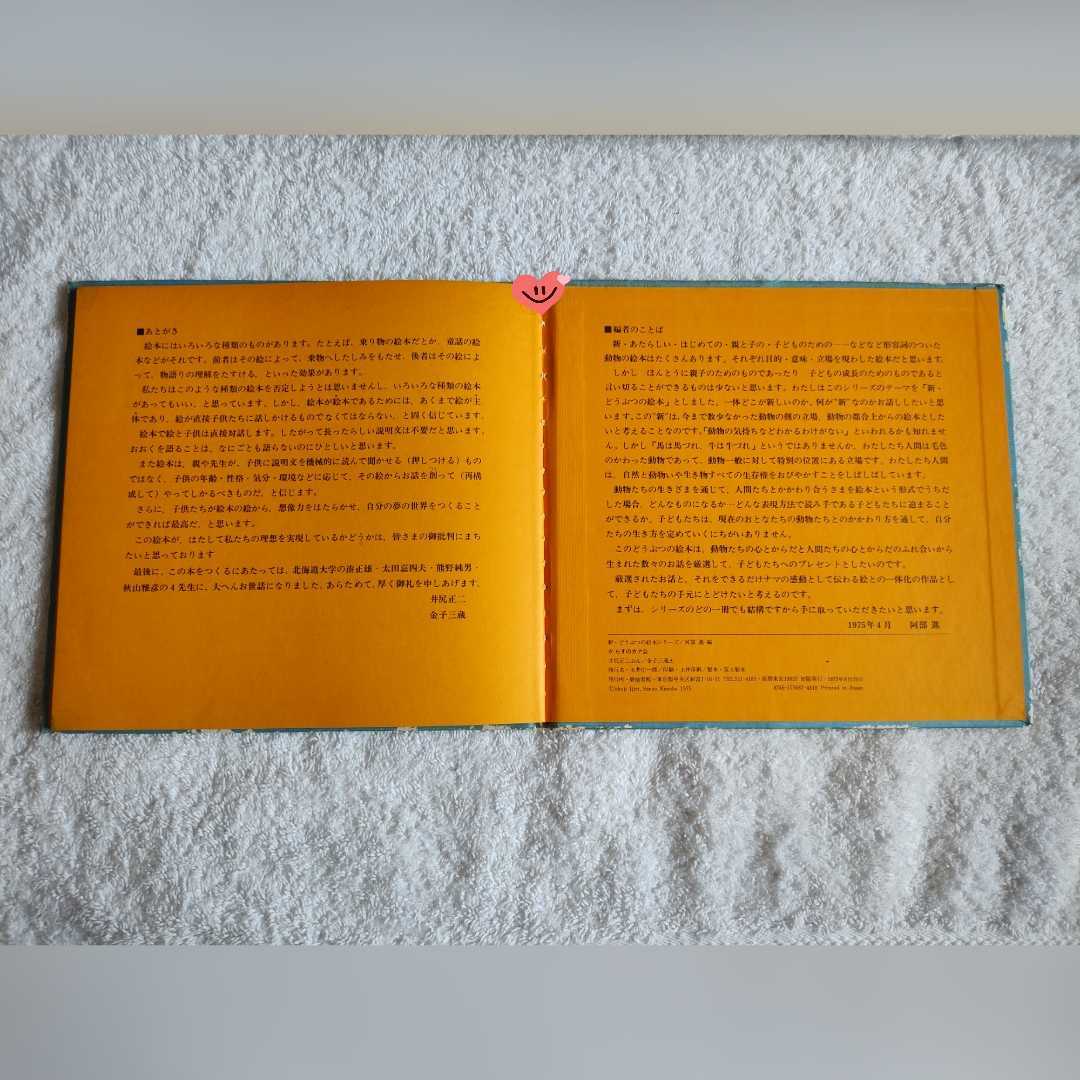 ■あとがき
絵本にはいろいろな種類のものがあります。たとえば、乗り物の絵本だとか、童話の絵
本などがそれです。前者はその絵によって、乗物へしたしみをもたせ、後者はその絵によ
って、物語りの理解をたすける、といった効果があります。
私たちはこのような種類の絵本を否定しようとは思いませんし、いろいろな種類の絵本
があってもいい、と思っています。しかし、絵本が絵本であるためには、あくまで絵が主
体であり、絵が直接子供たちに話しかけるものでなくてはならない、と固く信じています。
絵本で絵と子供は直接対話します。したがって長ったらしい説明文は不要だと思います。
おおくを語ることは、なにごとも語らないのにひとしいと思います。
また絵本は、親や先生が、子供に説明文を機械的に読んで聞かせる（押しつける）もの
ではなく、子供の年齢・性格・気分・環境などに応じて、その絵からお話を創って（再構
成して）やってしかるべきものだ、と信じます。
さらに、子供たちが絵本の絵から、想像力をはたらかせ、自分の夢の世界をつくること
ができれば最高だ、と思います。
この絵本が、はたして私たちの理想を実現しているかどうかは、皆さまの御批判にまち
たいと思っております
最後に、この本をつくるにあたっては、北海道大学の湊正雄・太田嘉四夫・熊野純男・
秋山雅彦の4先生に、大へんお世話になりました。あらためて、厚く御礼を申しあげます。
井尻正二
金子三蔵
■編者のことば
新・あたらしい・はじめての・親と子の・子どものための……などなど形容詞のついた
動物の絵本はたくさんあります。それぞれ目的・意味・立場を現わした絵本だと思います。
しかし、ほんとうに親子のためのものであったり、子どもの成長のためのものであると
言い切ることができるものは少ないと思います。わたしはこのシリーズのテーマを「新・
どうぶつの絵本」としました。一体どこが新しいのか、何が"新"なのかお話ししたいと思
います。この"新"は、今まで数少なかった動物の側の立場、動物の都合上からの絵本とした
いと考えることなのです。「動物の気持ちなどわかるわけがない」といわれるかも知れませ
ん。しかし『馬は馬づれ、牛は牛づれ』というではありませんか、わたしたち人間は毛色
のかわった動物であって、動物一般に対して特別の位置にある立場です。わたしたち人間
は、自然と動物いや生き物すべての生存権をおびやかすことをしばしばしています。
動物たちの生きざまを通じて、人間たちとかかわり合うさまを絵本という形式でうちだ
した場合、どんなものになるか―どんな表現方法で読み手である子どもたちに迫まること
ができるか、子どもたちは、現在のおとなたちの動物たちとのかかわり方を通して、自分
たちの生き方を定めていくにちがいありません。
このどうぶつの絵本は、動物たちの心とからだと人間たちの心とからだのふれ合いから
生まれた数々のお話を厳選して、子どもたちへのプレゼントとしたいのです。
厳選されたお話と、それをできるだけナマの感動として伝わる絵との一体化の作品とし
て、子どもたちの手元にとどけたいと考えるのです。
まずは、シリーズのどの一冊でも結構ですから手に取っていただきたいと思います。
1975年4月 阿部 進
新・どうぶつの絵本シリーズ／阿部 進 編
からすのカア公
井尻正二ぶん／金子三蔵え
Printed in Japan